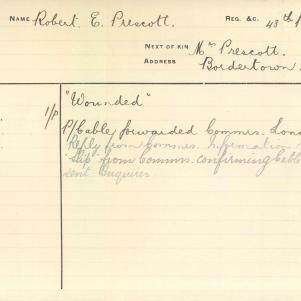 NAME Robert E. Prescott. REG. &C. 43th
NEXT OF KIN Mrs Prescott.
ADDRESS Bordertown.
1/P "Wounded"
P/Cable forwarded Commrs. Lond
Reply from Commrs. Information
slip from Commrs. confirming Cable
sent Enquirer.